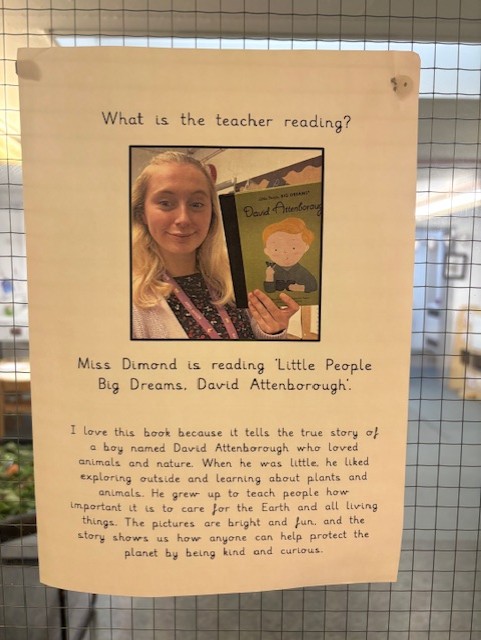 What is the teacher reading?
LITTLE PEOPLE, BIG DREAMS
David Attenboroug
Miss Dimond is reading 'Little People
Big Dreams, David Attenborough'.
I love this book because it tells the true story of
a boy named David Attenborough who loved
animals and nature. When he was little, he liked
exploring outside and learning about plants and
animals. He grew up to teach people how
important it is to care for the Earth and all living
things. The pictures are bright and fun, and the
story shows us how anyone can help protect the
planet by being kind and curious.